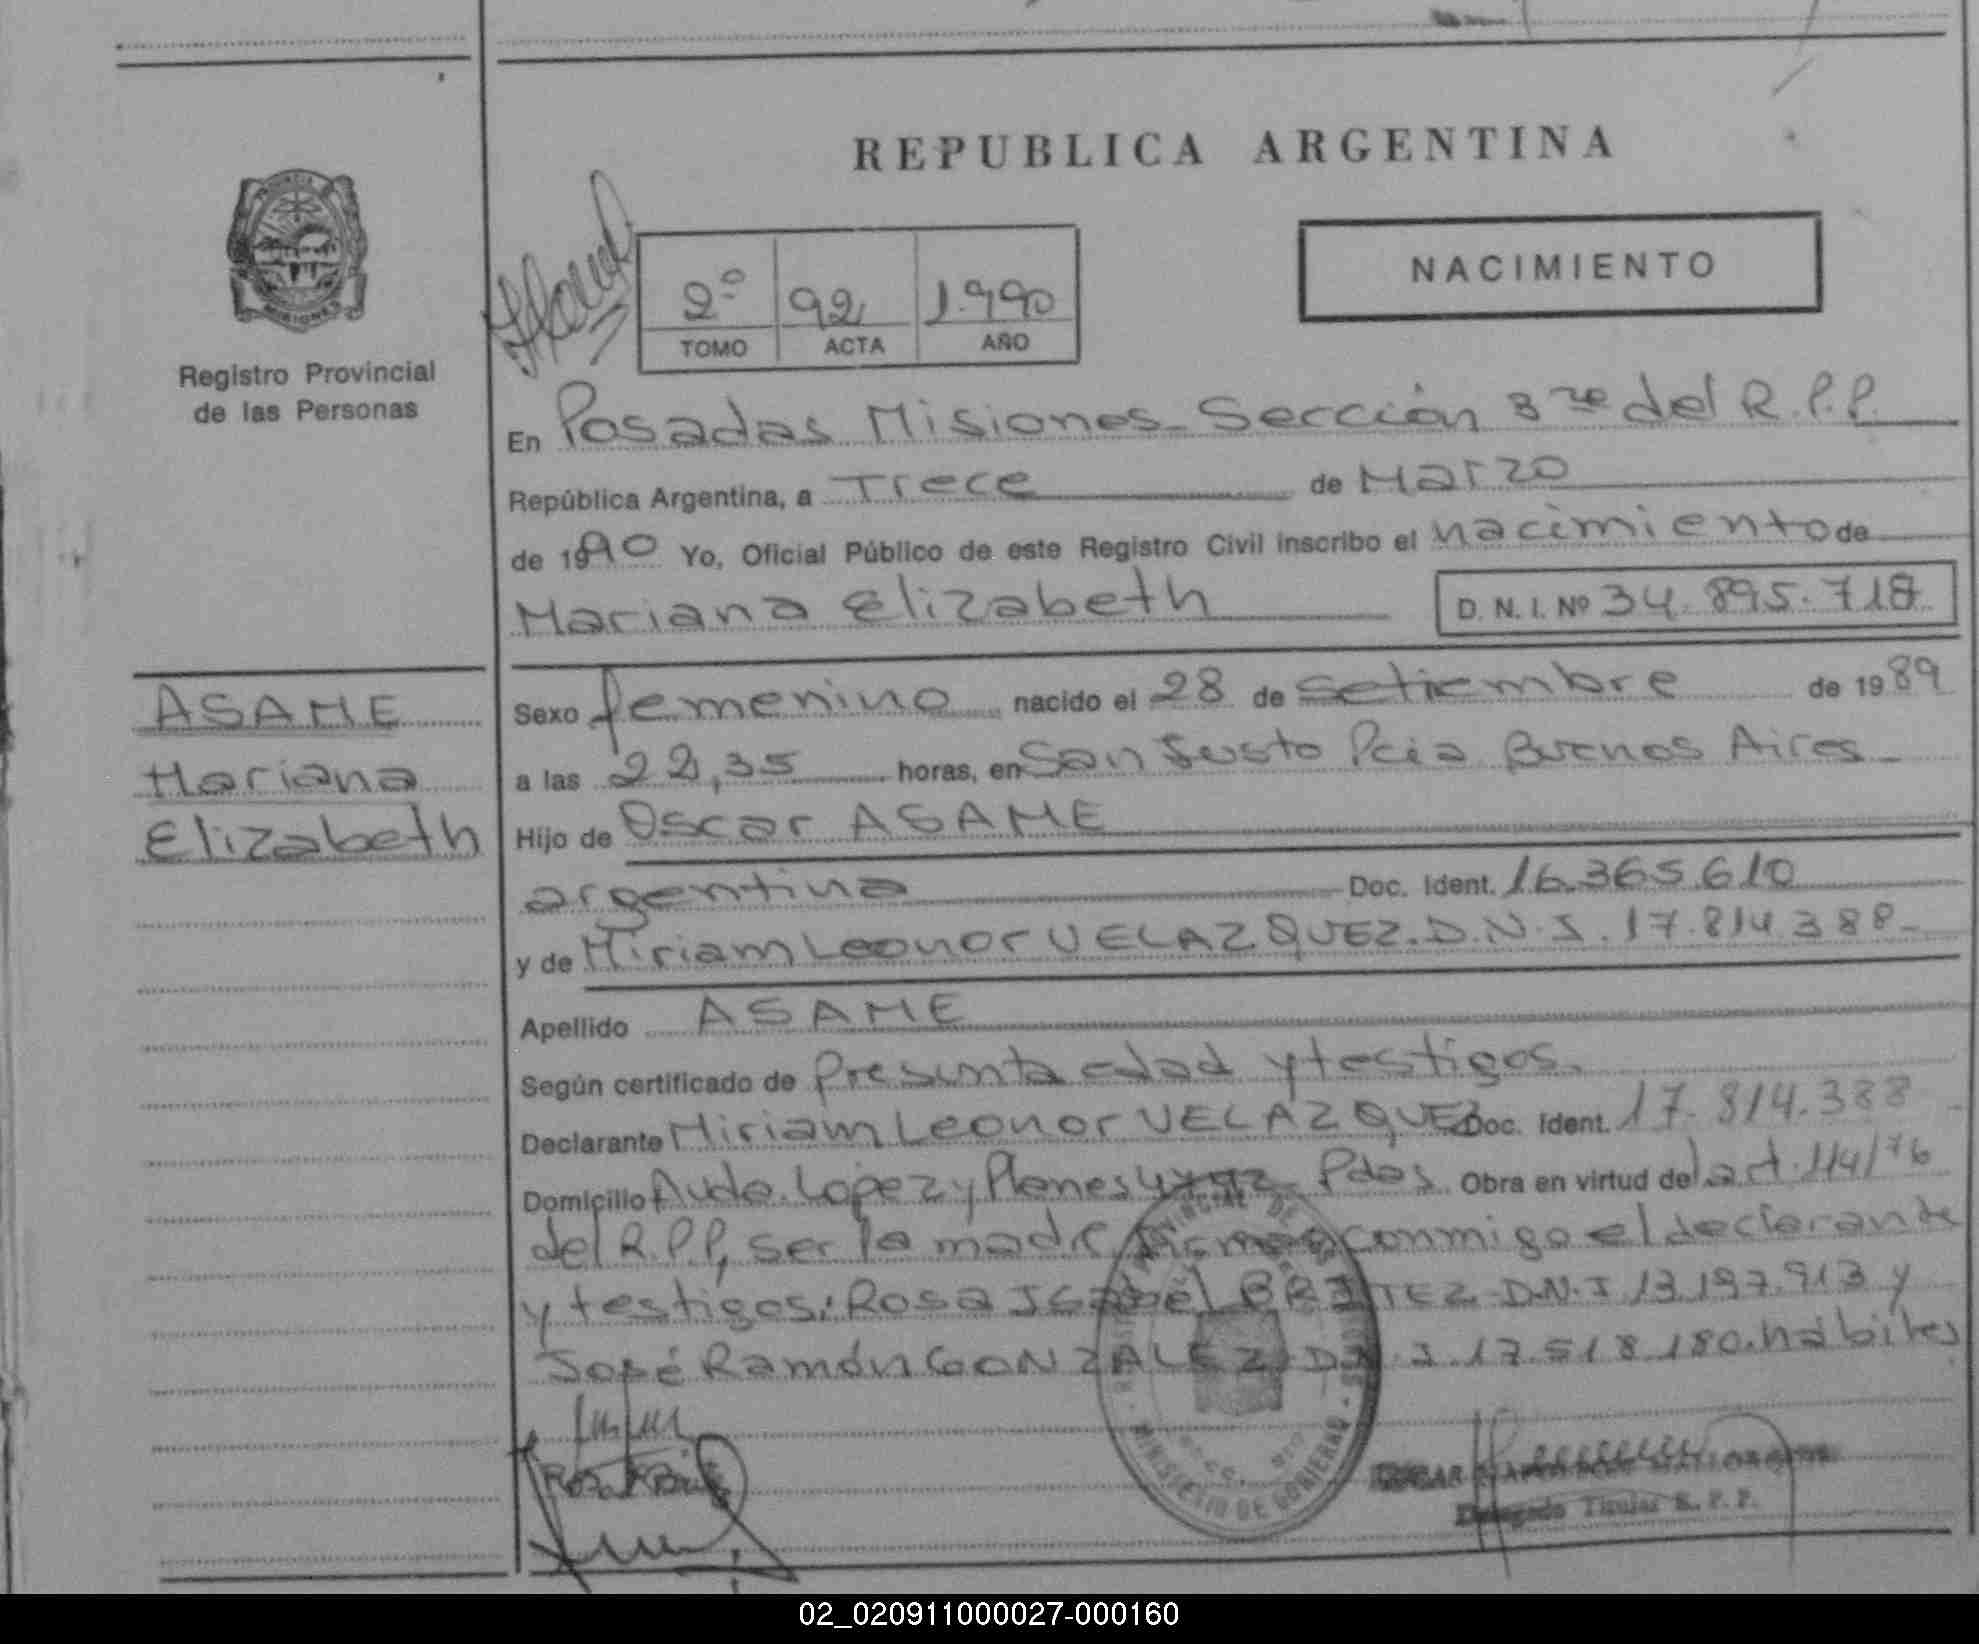 REPUBLICA ARGENTINA
NACIMIENTO
2º 92 1.990
TOMO ACTA AÑO
PROVINCIA
MISIONES
Registro Provincial
de las Personas
En Posadas Misiones Sección 3 del R.P.P.
República Argentina, a Trece de Marzo
de 1990 Yo, Oficial Público de este Registro Civil inscribo el nacimiento de
Mariana Elizabeth D. N. I. Nº 34.895.718
ASAME
Mariana
Elizabeth
Sexo femenino nacido el 28 de setiembre de 1989
a las 22,35 horas, en San Justo Pcia Buenos Aires-
Hijo de Oscar ASAME
argentina Doc. Ident. 16.365.610
y de Miriam Leonor VELAZQUEZ. D.N.I. 17.814.388-
Apellido ASAME
Según certificado de presunta edad y testigos.
Declarante Miriam Leonor VELAZQUEZ Doc. Ident. 17.814.388
Domicilio Avda. López y Planes Pdas. Obra en virtud del art. 114/76
del R.P.P, ser la madre conmigo el declarante
y testigos: Rosa Isabel BRITEZ D.N.I 13.197.913 y
José Ramón GONZALEZ D.N.I. 17.518.180. hábiles
MINISTERIO DE GOBIERNO
Delegado Titular R. P. P.
02_020911000027-000160